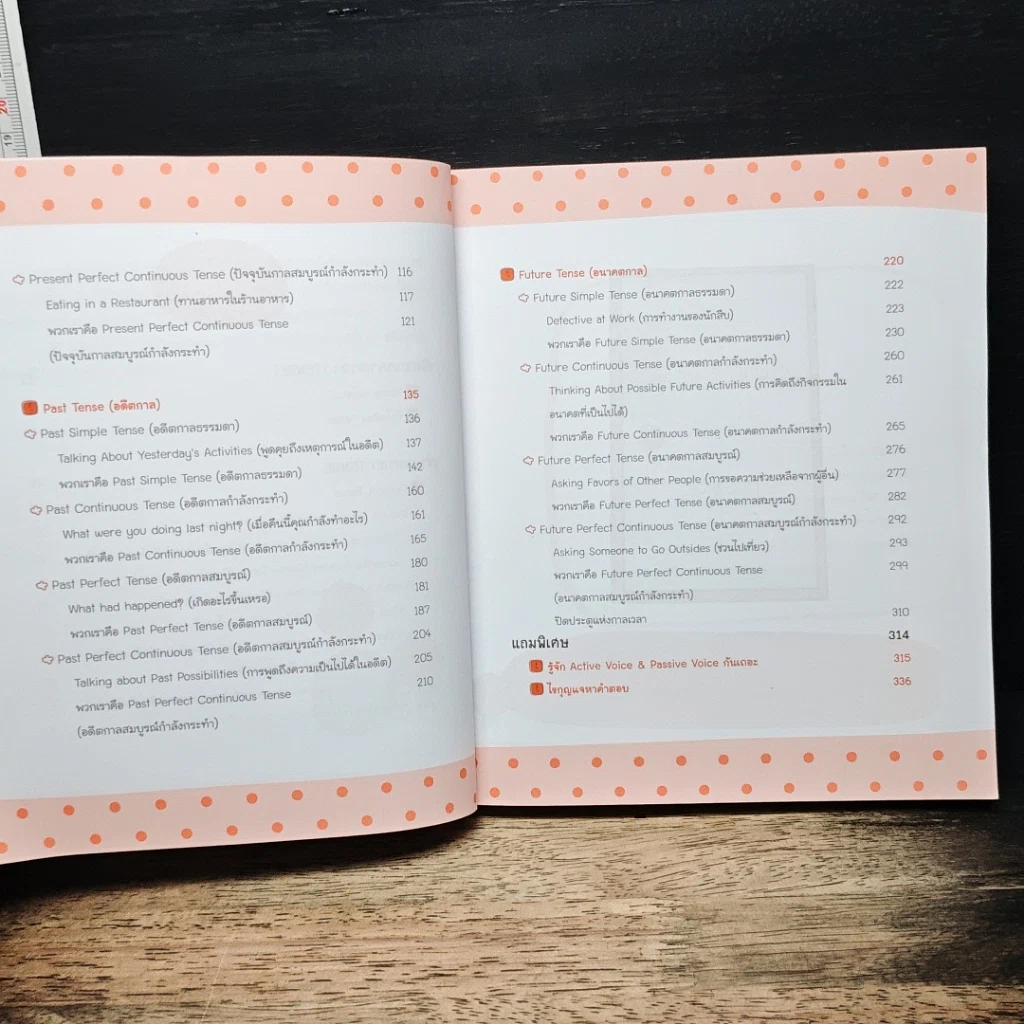 20
19
Present Perfect Continuous Tense (ปัจจุบันกาลสมบูรณ์กำลังกระทำ) 116
Eating in a Restaurant (ทานอาหารในร้านอาหาร) 117
พวกเราคือ Present Perfect Continuous Tense 121
(ปัจจุบันกาลสมบูรณ์กำลังกระทำ)
Past Tense (อดีตกาล) 135
Past Simple Tense (อดีตกาลธรรมดา) 136
Talking About Yesterday's Activities (พูดคุยถึงเหตุการณ์ในอดีต) 137
พวกเราคือ Past Simple Tense (อดีตกาลธรรมดา) 142
Past Continuous Tense (อดีตกาลกำลังกระทำ) 160
What were you doing last night? (เมื่อคืนนี้คุณกำลังทำอะไร) 161
พวกเราคือ Past Continuous Tense (อดีตกาลกำลังกระทำ) 165
Past Perfect Tense (อดีตกาลสมบูรณ์) 180
What had happened? (เกิดอะไรขึ้นเหรอ) 181
พวกเราคือ Past Perfect Tense (อดีตกาลสมบูรณ์) 187
Past Perfect Continuous Tense (อดีตกาลสมบูรณ์กำลังกระทำ) 204
Talking about Past Possibilities (การพูดถึงความเป็นไปได้ในอดีต) 205
พวกเราคือ Past Perfect Continuous Tense 210
(อดีตกาลสมบูรณ์กำลังกระทำ)
Future Tense (อนาคตกาล) 220
Future Simple Tense (อนาคตกาลธรรมดา) 222
Detective at Work (การทำงานของนักสืบ) 223
พวกเราคือ Future Simple Tense (อนาคตกาลธรรมดา) 230
Future Continuous Tense (อนาคตกาลกำลังกระทำ) 260
Thinking About Possible Future Activities (การคิดถึงกิจกรรมใน 261
อนาคตที่เป็นไปได้)
พวกเราคือ Future Continuous Tense (อนาคตกาลกำลังกระทำ) 265
Future Perfect Tense (อนาคตกาลสมบูรณ์) 276
Asking Favors of Other People (การขอความช่วยเหลือจากผู้อื่น) 277
พวกเราคือ Future Perfect Tense (อนาคตกาลสมบูรณ์) 282
Future Perfect Continuous Tense (อนาคตกาลสมบูรณ์กำลังกระทำ) 292
Asking Someone to Go Outsides (ชวนไปเที่ยว) 293
พวกเราคือ Future Perfect Continuous Tense 299
(อนาคตกาลสมบูรณ์กำลังกระทำ)
ปิดประตูแห่งกาลเวลา 310
แถมพิเศษ 314
รู้จัก Active Voice & Passive Voice กันเถอะ 315
ไขกุญแจหาคำตอบ 336